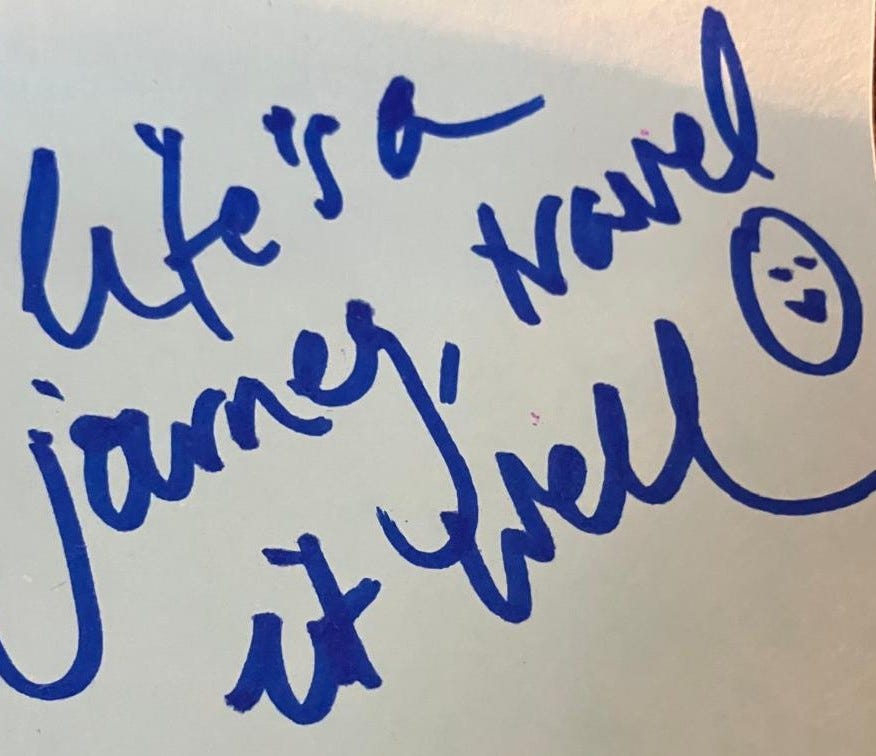 Life's a
journey, travel
it well